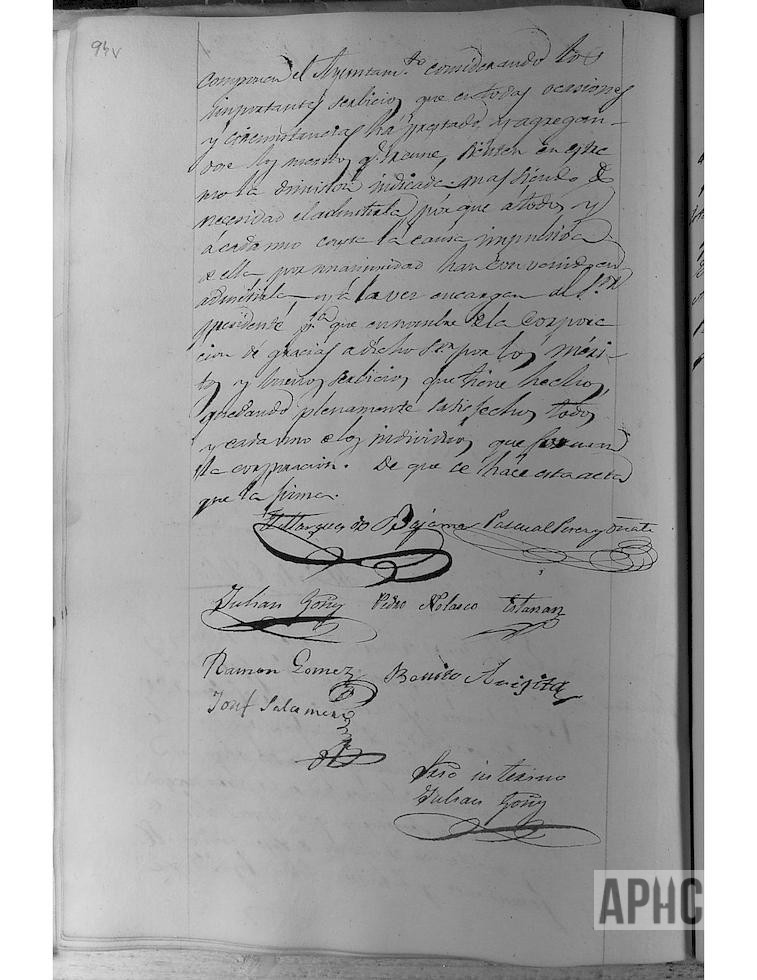 94v
componen el Ayuntam.to considerando los
importantes serbicios que en todas ocasiones
y circunstancias ha prestado, y agregan-
dose los meritos q.e reune, sienten en estre
mo la dimision indicada mas siendo de
necesidad el admitirla, por que a todos y
a cada uno consta la causa impulsiba
de ella por unanimidad han convenido en
admitirla, y a la vez encargan al S.or
presidente p.a que en nombre de la Corpora
cion de gracias a dicho S.or por los meri-
tos y buenos serbicios que tiene hechos,
quedando plenamente satisfechos todos
y cada uno de los individuos que forman
la corporacion. De que se hace esta acta
que la firman.
El Marques de Bajamar Pascual Perez y Oñate
Julian Goñy Pedro Nolasco
Ramon Gomez Benito
Josef Salamero
Srio interino
Julian Goñy
APHC